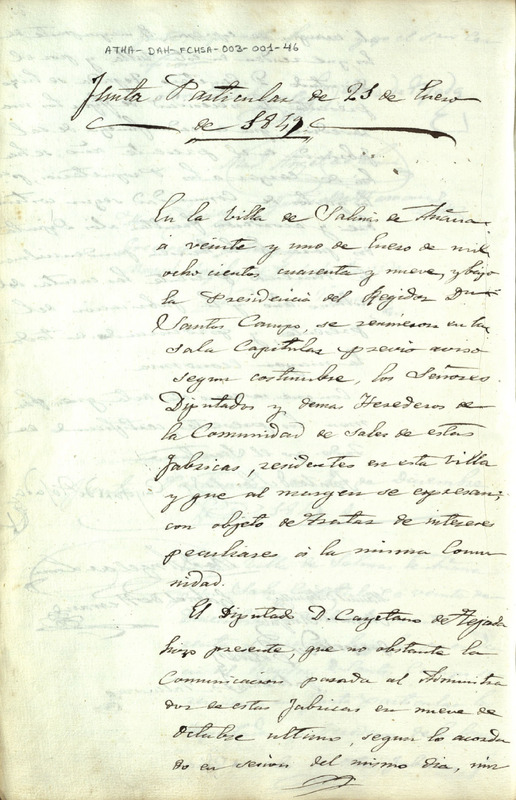 ATHA-DAH-FCHSA-003-001-46
Junta Particular de 21 de Enero
de 1849
En la villa de Salinas de Añana
á veinte y uno de Enero de mil
ocho cientos cuarenta y nueve, y bajo
la Presidencia del Regidor Dn
Santos Campo, se reunieron en la
sala Capitular previo aviso
segun costumbre, los Señores
Diputados y demas Herederos de
la Comunidad de sales de estas
fabricas, residentes en esta villa
y que al margen se espresan;
con objeto de tratar de intereses
peculiares á la misma Comu
nidad.
El Diputado D. Cayetano de Tejada
hizo presente, que no obstante la
Comunicacion pasada al Administra
dor de estas fabricas en nueve de
Octubre ultimo, segun lo acorda
do en sesion del mismo dia, nin